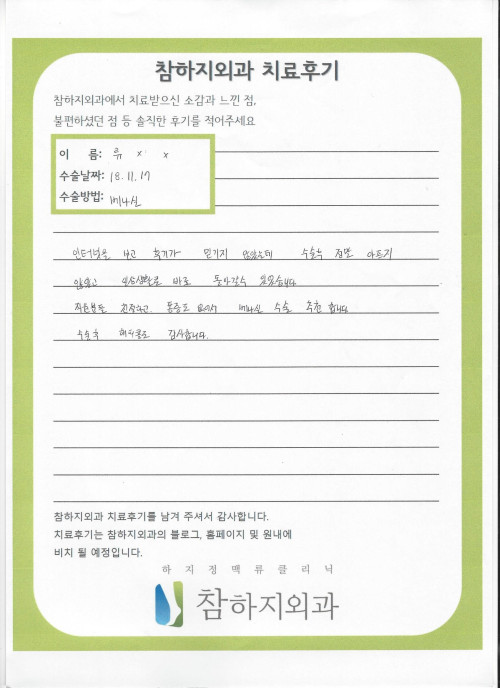 참하지외과 치료후기
참하지외과에서 치료받으신 소감과 느낀 점,
불편하셨던 점 등 솔직한 후기를 적어주세요
이 름: 유 x x
수술날짜: 18.11.17
수술방법: 베나실
인터넷을 보고 후기가 믿기지 않았는데 수술후 정말 아프지
않았고 일상생활로 바로 돌아갈수 있었습니다
직원분들 친절하고 통증도 없어서 베나실 수술 추천 합니다
수술후 해피콜도 감사합니다.
참하지외과 치료후기를 남겨 주셔서 감사합니다.
치료후기는 참하지외과의 블로그, 홈페이지 및 원내에
비치 될 예정입니다.
하지정맥류클리닉
참하지외과